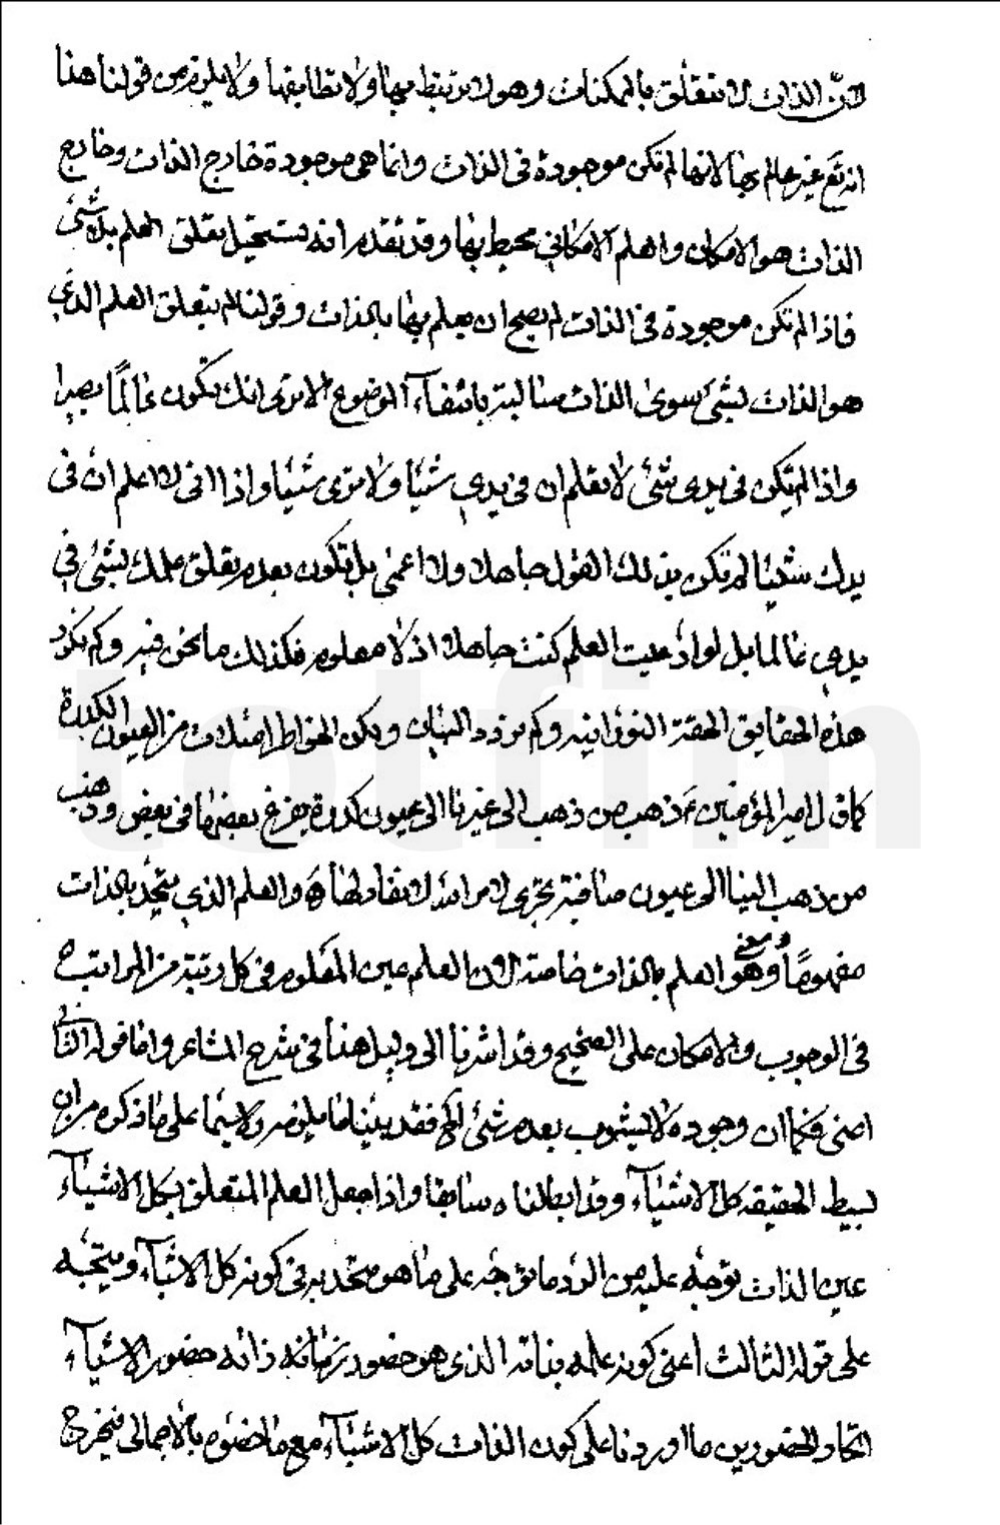 لانّ الذات لا تتعلق بالممكنات وهو لا ترتبط بها ولا تطابقها ولا يلزم من قولنا هذا
انه تع غير عالم بها لانها لم تكن موجودة فى الذات وانما هى موجودة خارج الذات وخارج
الذات هو الامكان والعلم الامكاني محيط بها وقد تقدم انه يستحيل تعلق العلم بلا شئ
فاذا لم تكن موجودة فى الذات لم يصح ان يعلم بها بالذات وقولنا لم يتعلق العلم الذي
هو الذات بشئ سوى الذات سالبة بانتفآء الموضوع الا ترى انك تكون عالمًا بصيرا
واذا لم يكن فى يدى شئ لا تعلم ان فى يدي شيئا ولا ترى شيئا واذا انى لا اعلم ان فى
يدك شيئا لم تكن بذلك القول جاهلا ولا اعمى بل تكون بعدم تعلق علمك بشئ في
يدي عالما بل لو ادعيت العلم كنت جاهلا اذ لا معلوم فكذلك ما نحن فيه وكم نكرر
هذه الحقايق الحقة النورانية وكم نردد البيان ولكن الخواطر امتلات من العيون الكدرة
كما قال امير المؤمنين ع ذهب من ذهب الى غيرنا الى عيون كدرة يفرغ بعضها فى بعض وذهب
من ذهب الينا الى عيون صافية تجرى بامر الله لا نفاد لها ه والعلم الذي يتحد بالذات
مفهومًا ومعنى هو العلم بالذات خاصة لان العلم عين المعلوم فى كل رتبة من المراتب
فى الوجوب والامكان على الصحيح وقد اشرنا الى دليل هذا فى شرح المشاعر واما قوله الثانى
اعنى فكما ان وجوده لا يشوب بعدم شئ الخ فقد بينا ما يلزمه ولا سيما على ما ذكره من ان
بسيط الحقيقة كل الاشيآء وقد ابطلناه سابقا واذا جعل العلم المتعلق بكل الاشيآء
عين الذات توجه عليه من الرد ما توجه على ما هو متحد به فى كونه كل الاشيآء ويتجه
على قوله الثالث اعنى كون علمه بذاته الذى هو حضور ذاته حضور الاشيآء
اتحاد الحضورين ما اوردنا على كون الذات كل الاشيآء مع ما خصوه بالاجمالى فيخرج